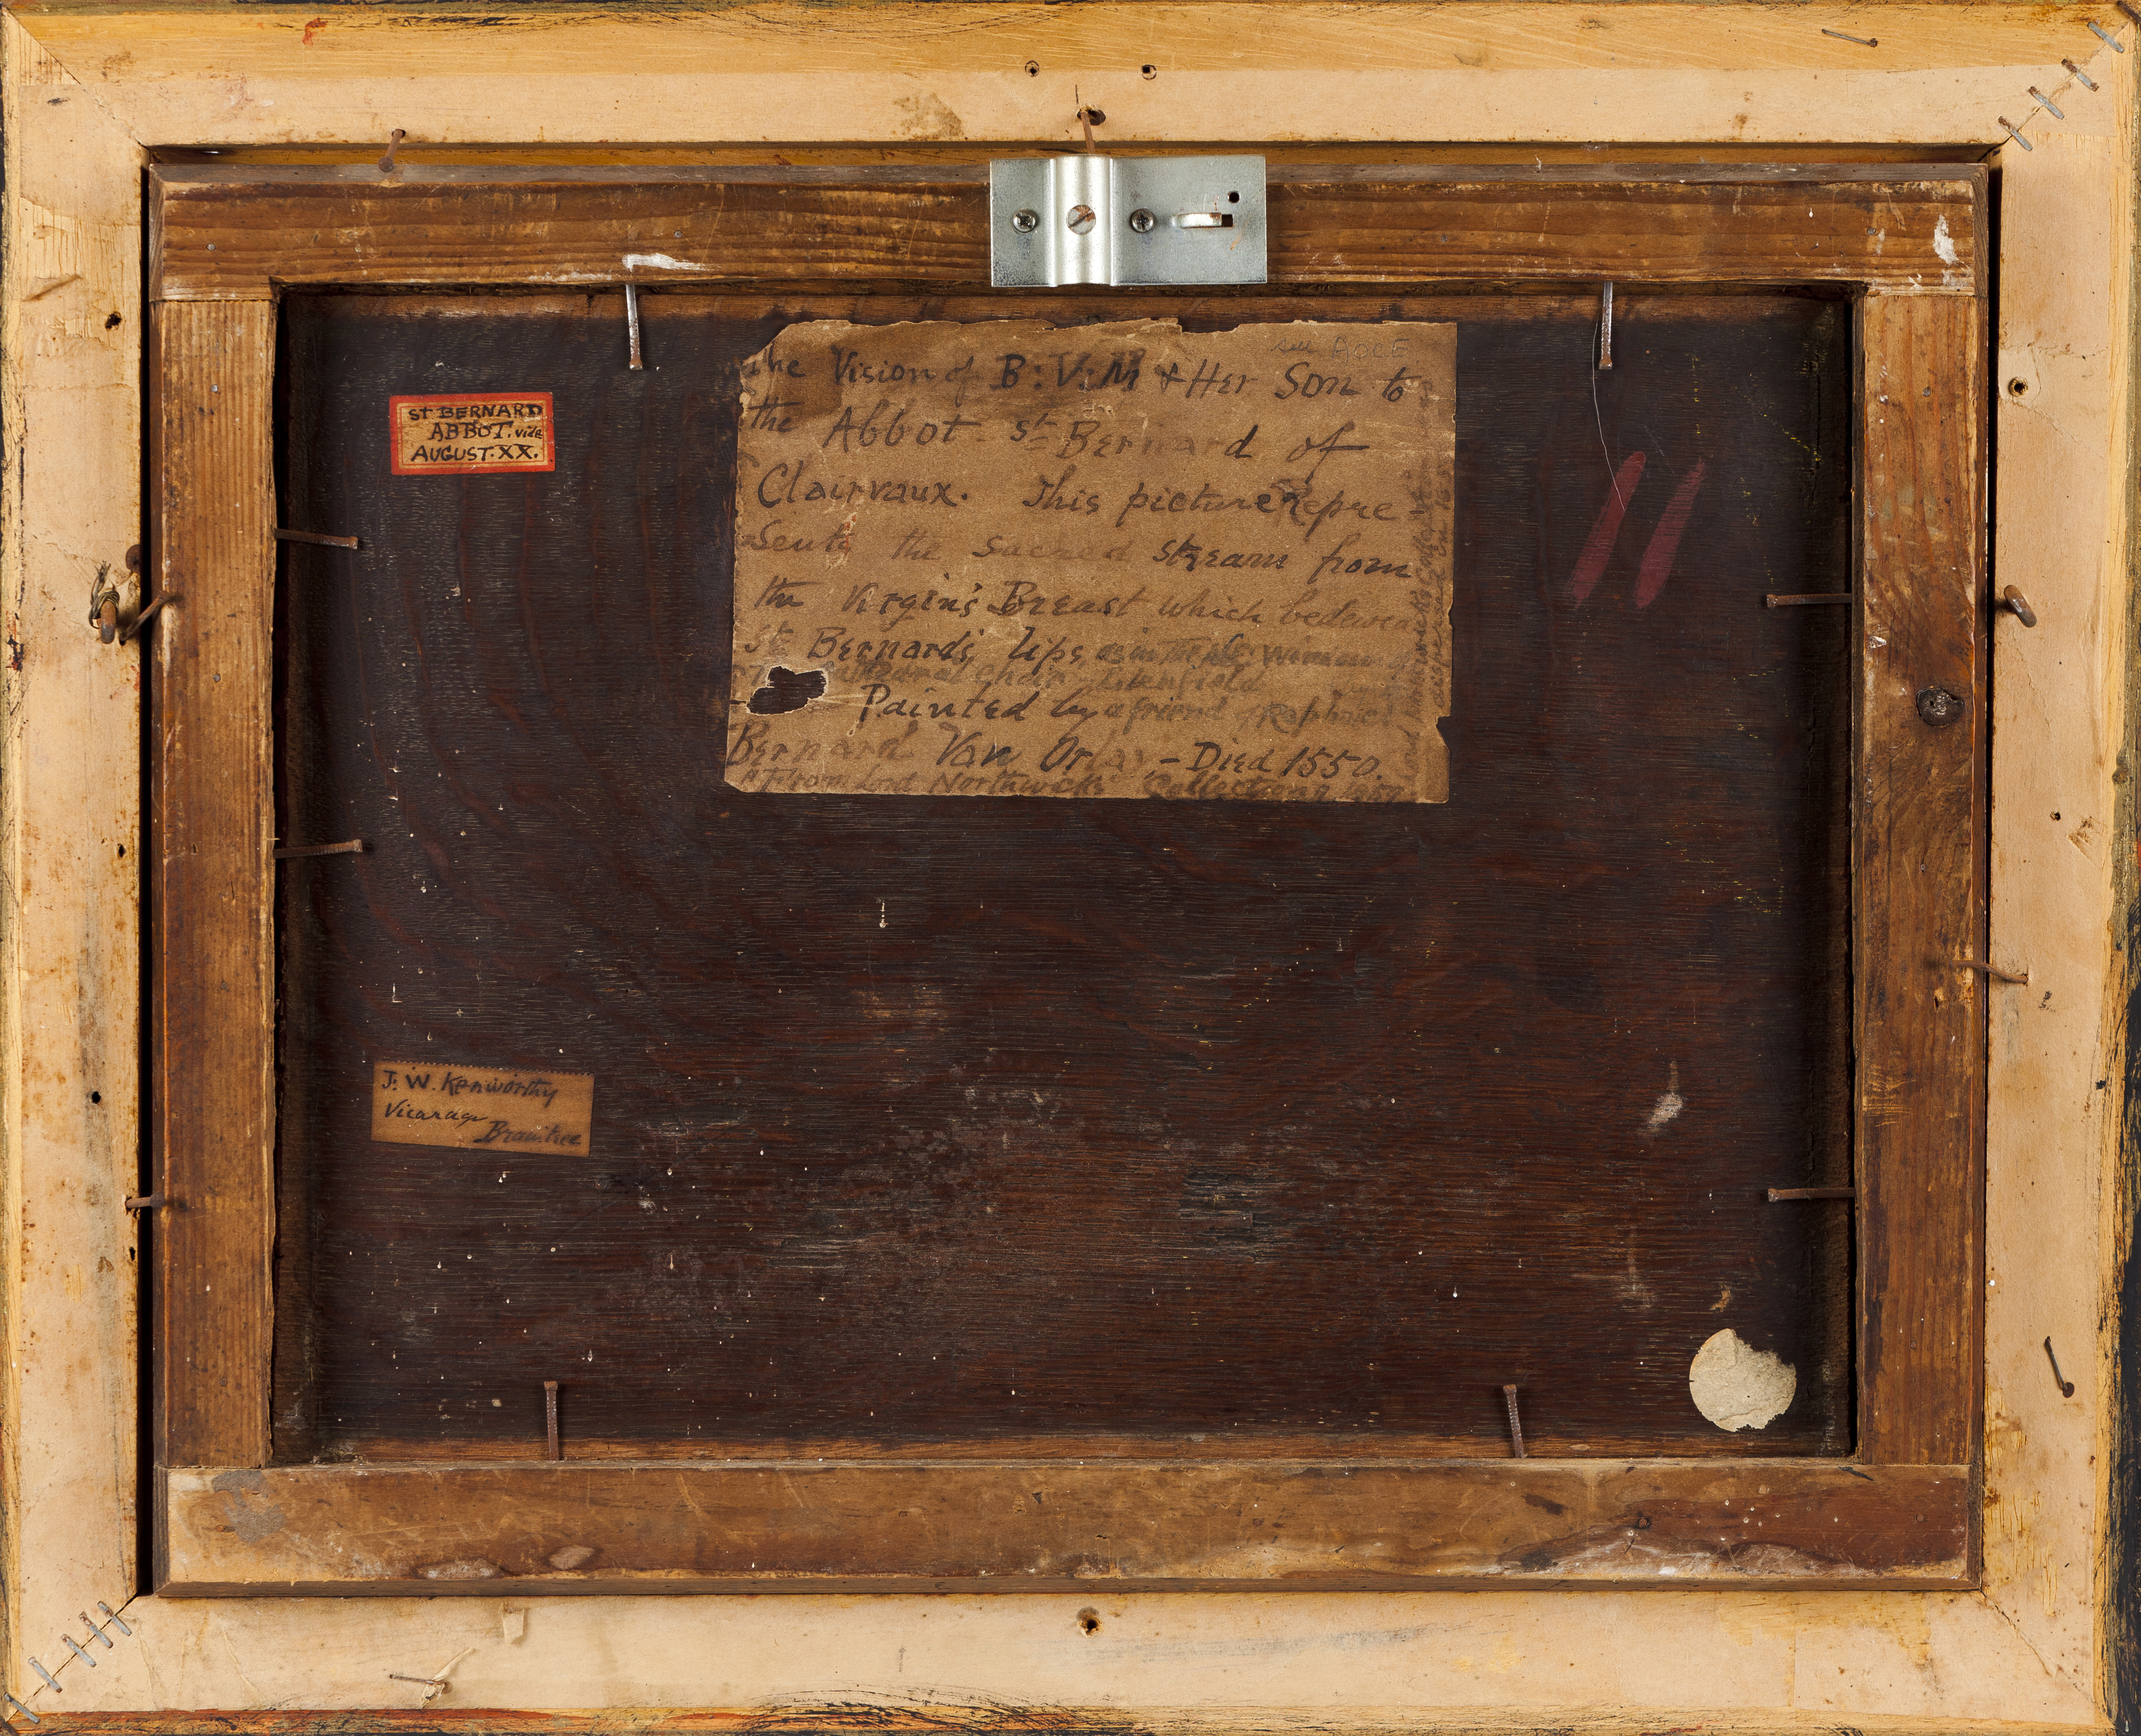 St BERNARD
ABBOT. vide
AUGUST. XX.
the Vision of B: V: M & Her Son to
the Abbot St Bernard of
Clairvaux. This picture Repre
Sents the sacred stream from
the Virgin's Breast which bedewed
St Bernard's Lips, as in the
Painted by a friend of Raphael
Bernard Van Orlay - Died 1550.
from Lord Northwick's Collection
J. W. Kenworthy
Vicarage
Braintree